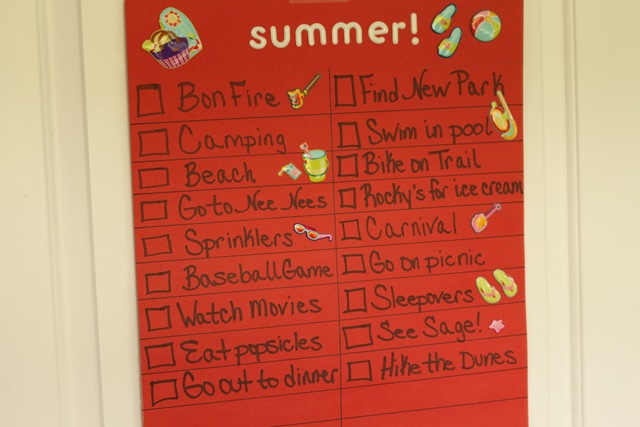 summer!
Bon Fire
Camping
Beach
Go to Nee Nees
Sprinklers
Baseball Game
Watch Movies
Eat popsicles
Go out to dinner
Find New Park
Swim in pool
Bike on Trail
Rocky's for ice cream
Carnival
Go on picnic
Sleepovers
See Sage!
Hike the Dunes